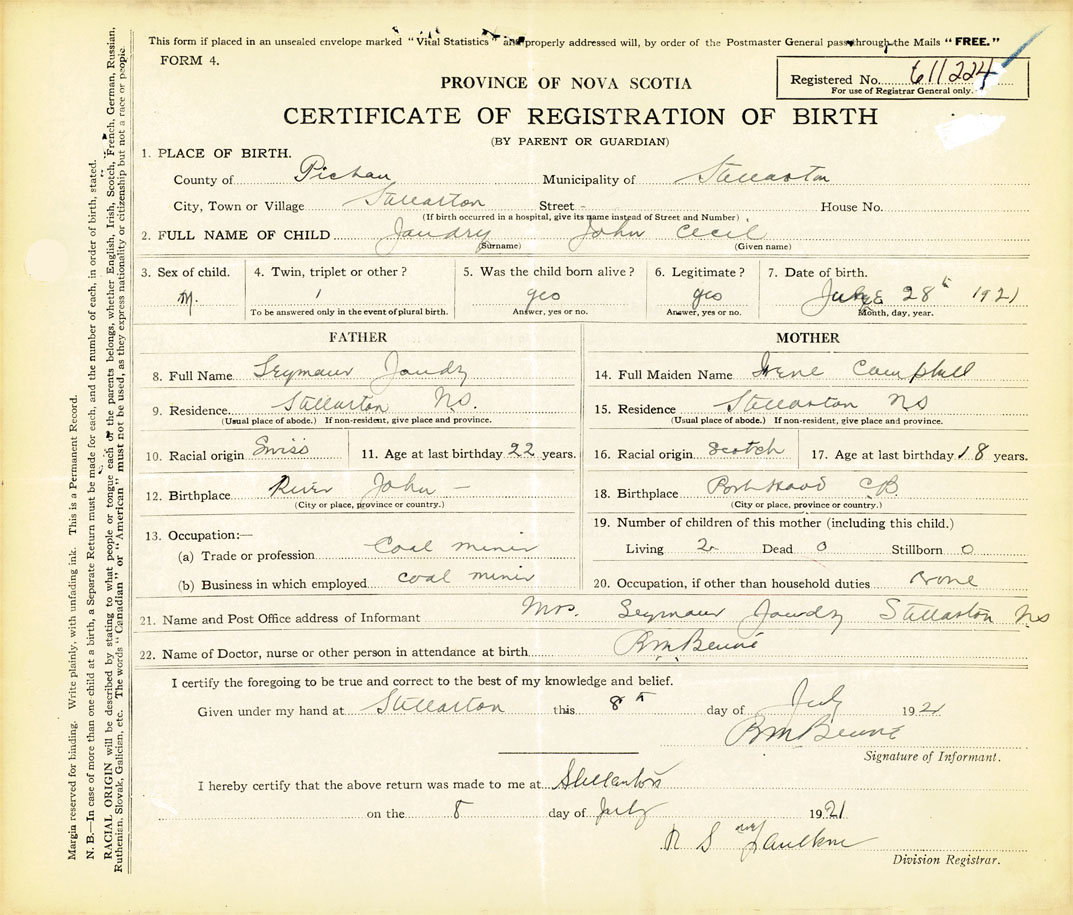 This form if placed in an unsealed envelope marked "Vital Statistics" and properly addressed will, by order of the Postmaster General pass through the Mails "FREE."
FORM 4.
Registered No. 611224
For use of Registrar General only.
PROVINCE OF NOVA SCOTIA
CERTIFICATE OF REGISTRATION OF BIRTH
(BY PARENT OR GUARDIAN)
1. PLACE OF BIRTH.
County of Pictou Municipality of Stellarton
City, Town or Village Stellarton Street - House No.
(If birth occurred in a hospital, give its name instead of Street and Number)
2. FULL NAME OF CHILD Jaudry John Cecil
(Surname) (Given name)
3. Sex of child. 4. Twin, triplet or other? 5. Was the child born alive? 6. Legitimate? 7. Date of birth.
M. 1 yes yes 28th 1921
To be answered only in the event of plural birth. Answer, yes or no. Answer, yes or no. Month, day, year.
FATHER
8. Full Name Seymour Jaudry
9. Residence Stellarton N.S.
(Usual place of abode.) If non-resident, give place and province.
10. Racial origin Swiss 11. Age at last birthday 22 years.
12. Birthplace River John -
(City or place, province or country.)
13. Occupation:—
(a) Trade or profession Coal miner
(b) Business in which employed coal miner
MOTHER
14. Full Maiden Name Irene Campbell
15. Residence Stellarton NS
(Usual place of abode.) If non-resident, give place and province.
16. Racial origin Scotch 17. Age at last birthday 18 years.
18. Birthplace Port Hood CB
(City or place, province or country.)
19. Number of children of this mother (including this child.)
Living 2 Dead 0 Stillborn 0
20. Occupation, if other than household duties none
21. Name and Post Office address of Informant Mrs. Seymour Jaudry Stellarton NS
22. Name of Doctor, nurse or other person in attendance at birth
I certify the foregoing to be true and correct to the best of my knowledge and belief.
Given under my hand at Stellarton this 8th day of July 1921
Signature of Informant.
I hereby certify that the above return was made to me at Stellarton
on the 8 day of July 1921
Faulkner
Division Registrar.
Margin reserved for binding. Write plainly, with unfading ink. This is a Permanent Record.
N. B.—In case of more than one child at a birth, a Separate Return must be made for each, and the number of each, in order of birth, stated.
RACIAL ORIGIN will be described by stating to what people or tongue each of the parents belongs, whether English, Irish, Scotch, French, German, Russian,
Ruthenian, Slovak, Galician, etc. The words "Canadian" or "American" must not be used, as they express nationality or citizenship but not a race or people.